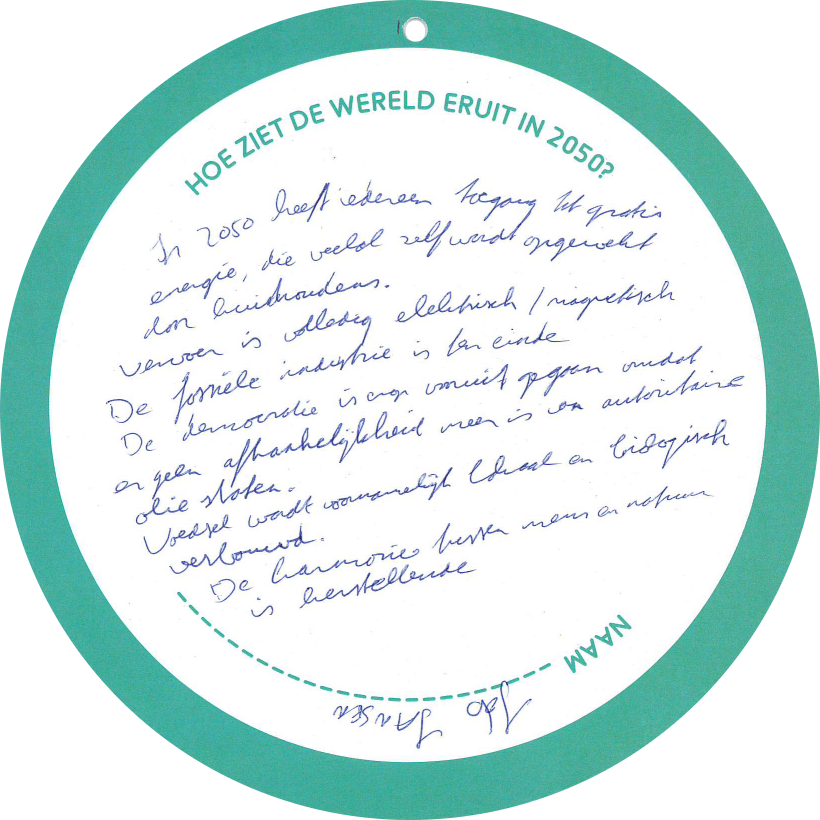 HOE ZIET DE WERELD ERUIT IN 2050?
In 2050 heeft iedereen toegang tot gratis
energie, die veelal zelf wordt opgewekt
door huishoudens.
Vervoer is volledig elektrisch / magnetisch
De fossiele industrie is ten einde
De democratie is erop vooruit gegaan omdat
er geen afhankelijkheid meer is van autoritaire
olie staten.
Voedsel wordt voornamelijk lokaal en biologisch
verbouwd.
De harmonie tussen mens en natuur
is herstellende
NAAM
JANSEN